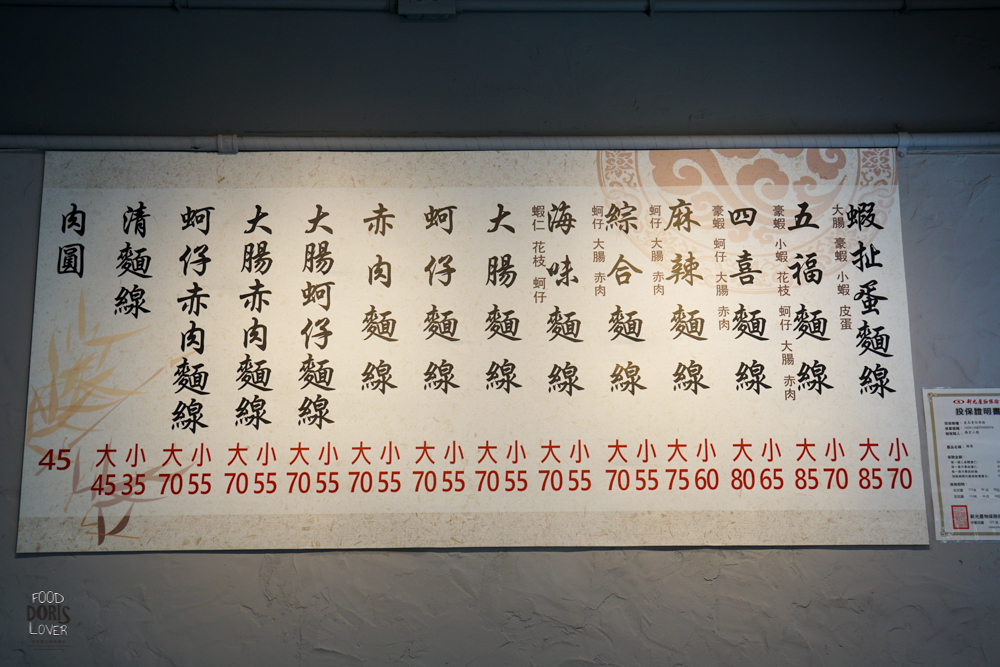 蝦扯蛋麵線
大腸 豪蝦 小蝦 皮蛋
大 小
85 70
五福麵線
豪蝦 小蝦 花枝 蚵仔 大腸 赤肉
大 小
85 70
四喜麵線
豪蝦 蚵仔 大腸 赤肉
大 小
80 65
麻辣麵線
蚵仔 大腸 赤肉
大 小
75 60
綜合麵線
蚵仔 大腸 赤肉
大 小
70 55
海味麵線
蝦仁 花枝 蚵仔
大 小
70 55
大腸麵線
大 小
70 55
蚵仔麵線
大 小
70 55
赤肉麵線
大 小
70 55
大腸蚵仔麵線
大 小
70 55
大腸赤肉麵線
大 小
70 55
蚵仔赤肉麵線
大 小
70 55
清麵線
大 小
45 35
肉圓
45
投保證明書
FOOD
DORIS
LOVER